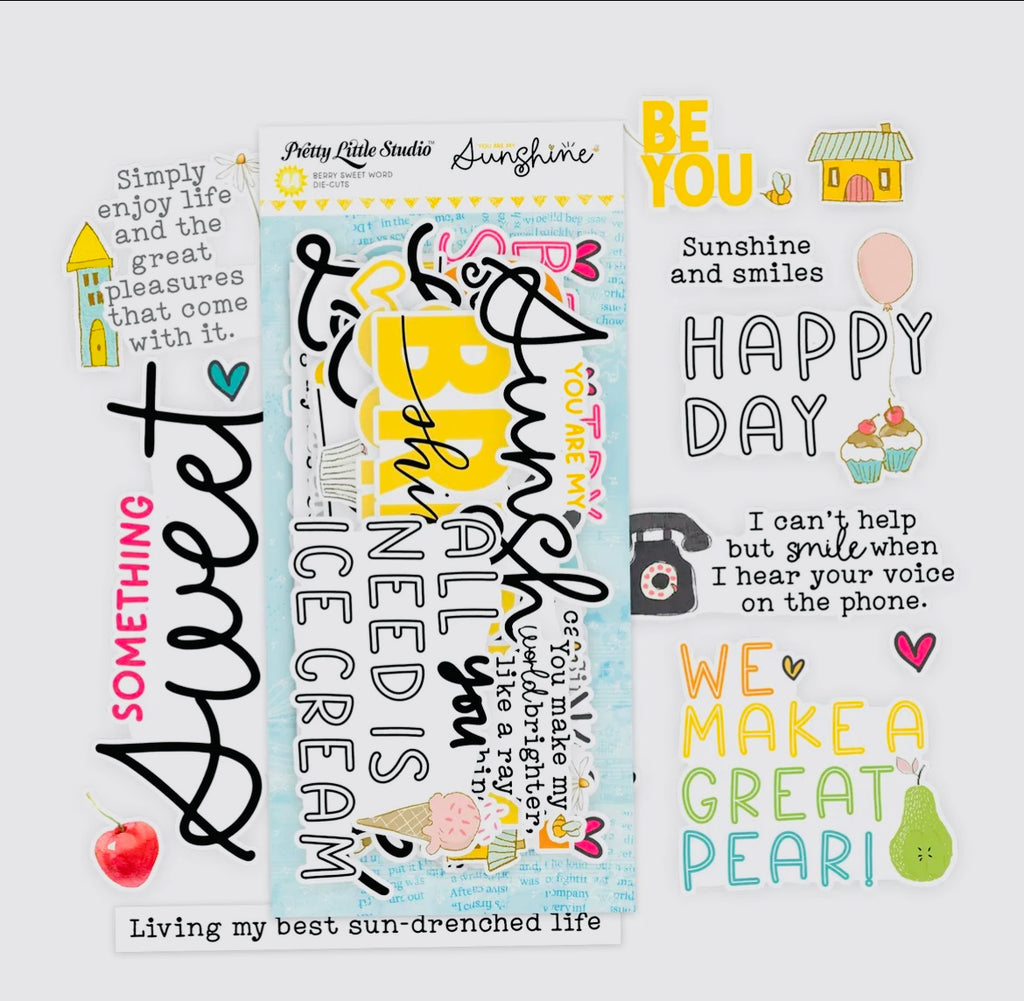 Pretty Little Studio™
YOU ARE MY
Sunshine
BERRY SWEET WORD
DIE-CUTS
Simply
enjoy life
and the
great
pleasures
that come
with it.
SOMETHING
Sweet
Living my best sun-drenched life
YOU ARE MY
Sunsh
shi
ALL you
NEED IS
ICE CREAM
You make my
world brighter,
like a ray
BE
YOU
Sunshine
and smiles
HAPPY
DAY
I can't help
but smile when
I hear your voice
on the phone.
WE
MAKE A
GREAT
PEAR!